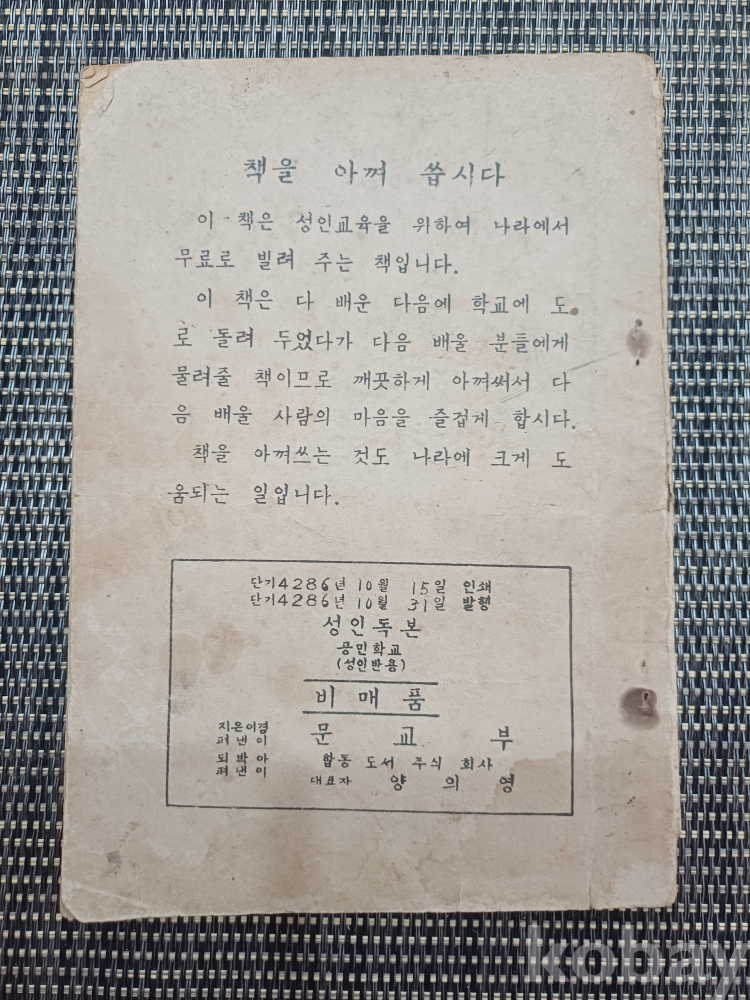 책을 아껴 씁시다
이 책은 성인교육을 위하여 나라에서
무료로 빌려 주는 책입니다.
이 책은 다 배운 다음에 학교에 도
로 돌려 두었다가 다음 배울 분들에게
물려줄 책이므로 깨끗하게 아껴써서 다
음 배울 사람의 마음을 즐겁게 합시다.
책을 아껴쓰는 것도 나라에 크게 도
움되는 일입니다.
단기4286년 10월 15일 인쇄
단기4286년 10월 31일 발행
성인독본
공민학교
(성인반용)
비매품
지은이겸
펴낸이
문교부
되박아
펴낸이
합동 도서 주식 회사
대표자 양의영
kobay